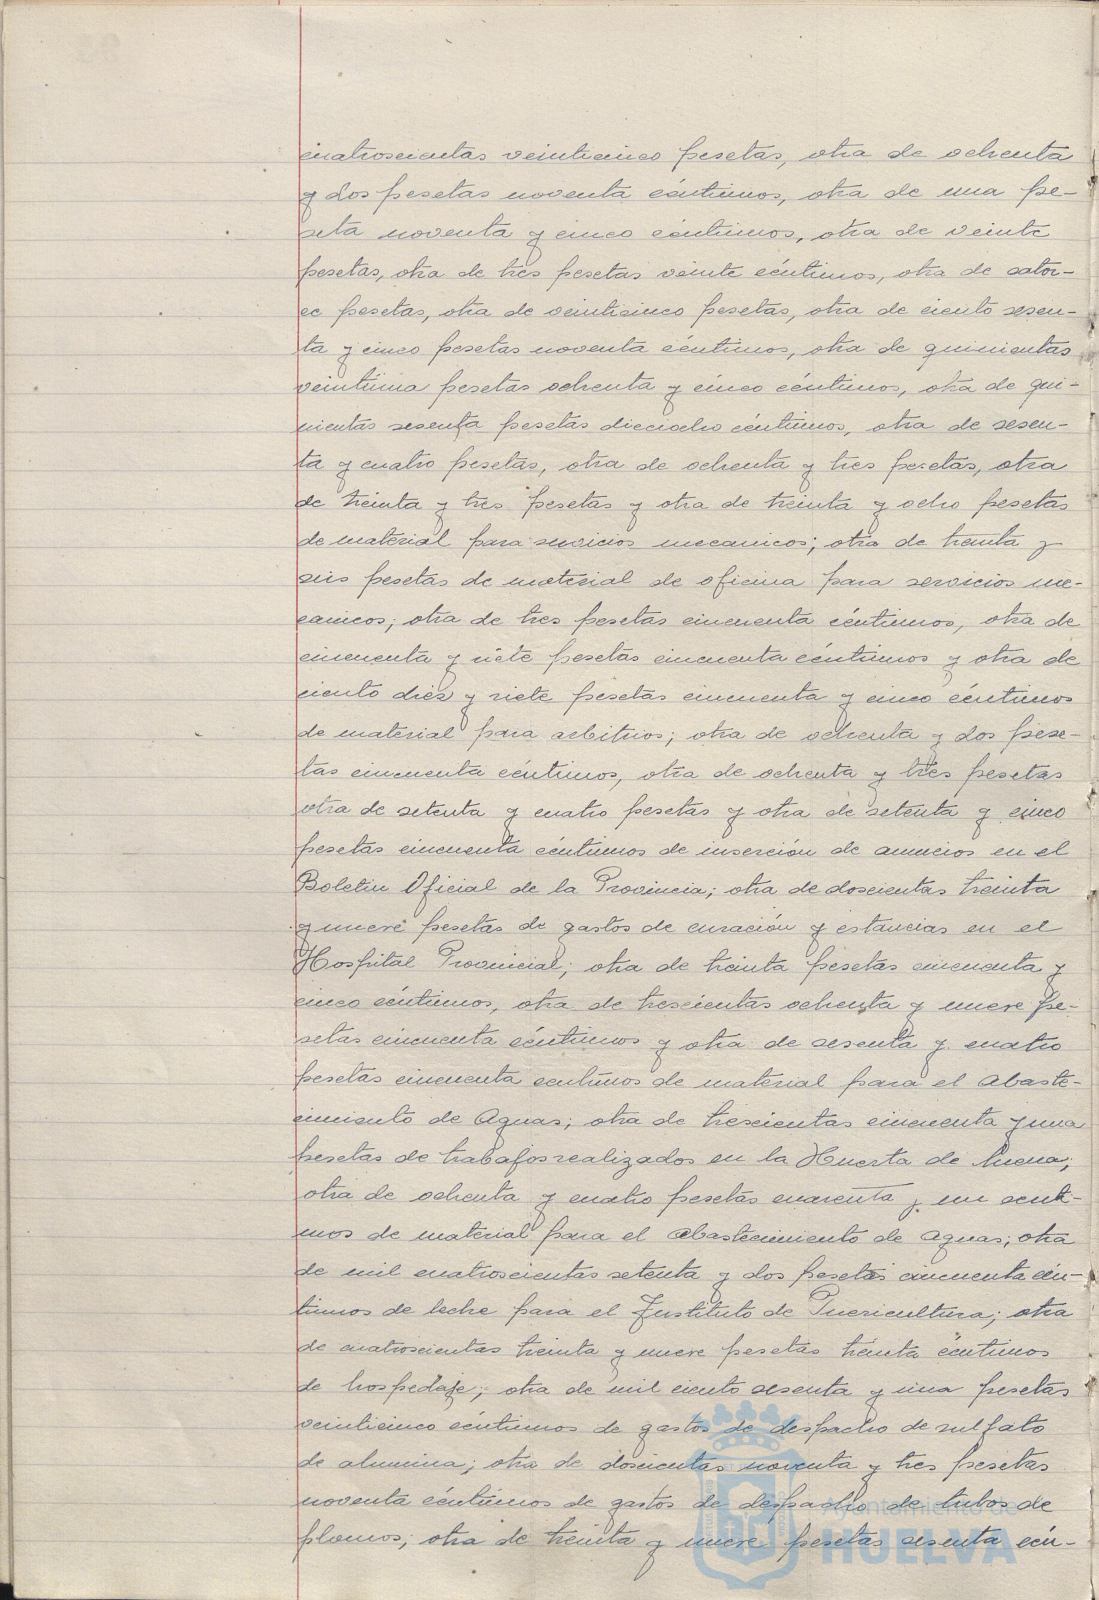 cuatroscientas veinticinco pesetas, otra de ochenta
y dos pesetas noventa céntimos, otra de una pe-
seta noventa y cinco céntimos, otra de veinte
pesetas, otra de tres pesetas veinte céntimos, otra de cator-
ce pesetas, otra de veinticinco pesetas, otra de ciento sesen-
ta y cinco pesetas noventa céntimos, otra de quinientas
veintiuna pesetas ochenta y cinco céntimos, otra de qui-
nientas sesenta pesetas dieciocho céntimos, otra de sesen-
ta y cuatro pesetas, otra de ochenta y tres pesetas, otra
de treinta y tres pesetas y otra de treinta y ocho pesetas
de material para servicios mecanicos; otra de treinta y
seis pesetas de material de oficina para servicios me-
canicos; otra de tres pesetas cincuenta céntimos, otra de
cincuenta y siete pesetas cincuenta céntimos y otra de
ciento diez y siete pesetas cincuenta y cinco céntimos
de material para arbitrios; otra de ochenta y dos pese-
tas cincuenta céntimos, otra de ochenta y tres pesetas
otra de setenta y cuatro pesetas y otra de setenta y cinco
pesetas cincuenta céntimos de inserción de anuncios en el
Boletin Oficial de la Provincia; otra de doscientas treinta
y nueve pesetas de gastos de curación y estancias en el
Hospital Provincial; otra de treinta pesetas cincuenta y
cinco céntimos, otra de trescientas ochenta y nueve pe-
setas cincuenta céntimos y otra de sesenta y cuatro
pesetas cincuenta centimos de material para el Abaste-
cimiento de Aguas; otra de trescientas cincuenta y una
pesetas de trabajos realizados en la Huerta de Mena;
otra de ochenta y cuatro pesetas cuarenta y un centi-
mos de material para el Abastecimiento de Aguas; otra
de mil cuatroscientas setenta y dos pesetas cincuenta cén-
timos de leche para el Instituto de Puericultura; otra
de cuatroscientas treinta y nueve pesetas treinta centimos
de hospedaje; otra de mil ciento sesenta y una pesetas
veinticinco céntimos de gastos de despacho de sulfato
de alumina; otra de doscientas noventa y tres pesetas
noventa céntimos de gastos de despacho de tubos de
plomos; otra de treinta y nueve pesetas sesenta cén-
Ayuntamiento de
HUELVA